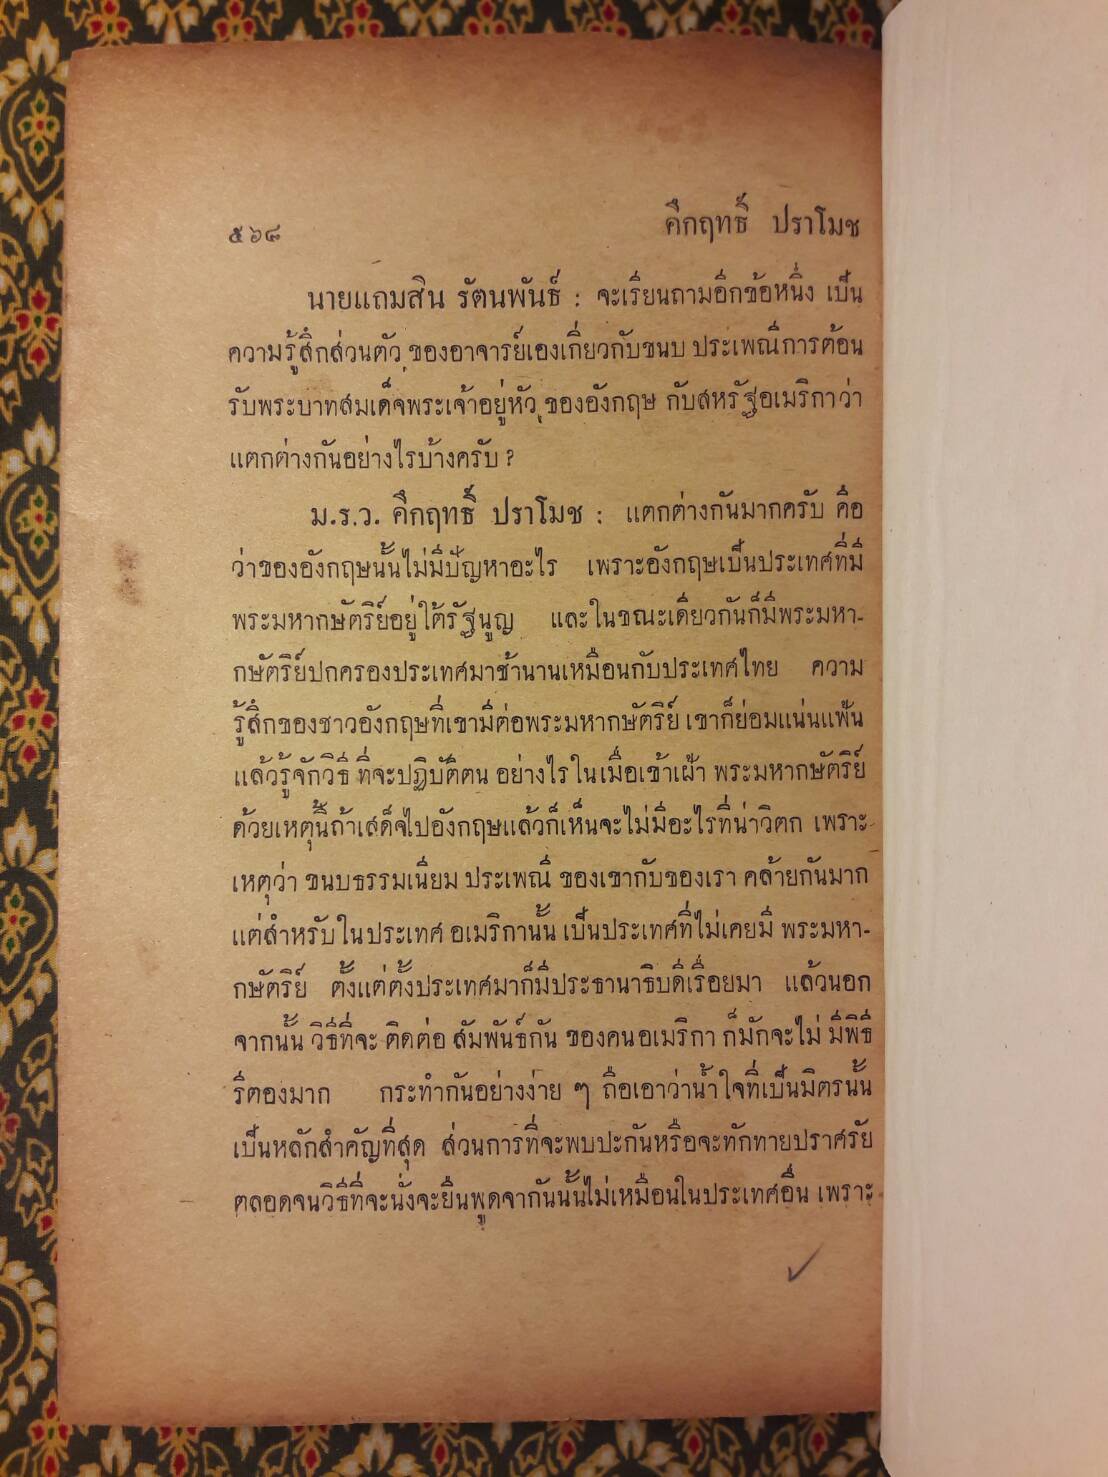 ๕๖๘
คึกฤทธิ์ ปราโมช
นายแถมสิน รัตนพันธ์ : จะเรียนถามอีกข้อหนึ่ง เป็น
ความรู้สึกส่วนตัว ของอาจารย์เองเกี่ยวกับขนบ ประเพณีการต้อน
รับพระบาทสมเด็จพระเจ้าอยู่หัว ของอังกฤษ กับสหรัฐอเมริกาว่า
แตกต่างกันอย่างไรบ้างครับ ?
ม.ร.ว. คึกฤทธิ์ ปราโมช : แตกต่างกันมากครับ คือ
ว่าของอังกฤษนั้นไม่มีปัญหาอะไร เพราะอังกฤษเป็นประเทศที่มี
พระมหากษัตริย์อยู่ใต้รัฐนูญ และในขณะเดียวกันก็มีพระมหา-
กษัตริย์ปกครองประเทศมาช้านานเหมือนกับประเทศไทย ความ
รู้สึกของชาวอังกฤษที่เขามีต่อพระมหากษัตริย์ เขาก็ย่อมแน่นแฟ้น
แล้วรู้จักวิธี ที่จะปฏิบัติตน อย่างไรในเมื่อเข้าเฝ้า พระมหากษัตริย์
ด้วยเหตุนี้ถ้าเสด็จไปอังกฤษแล้วก็เห็นจะไม่มีอะไรที่น่าวิตก เพราะ
เหตุว่า ขนบธรรมเนียม ประเพณี ของเขากับของเรา คล้ายกันมาก
แต่สำหรับในประเทศ อเมริกานั้น เป็นประเทศที่ไม่เคยมี พระมหา-
กษัตริย์ ตั้งแต่ตั้งประเทศมาก็มีประธานาธิบดีเรื่อยมา แล้วนอก
จากนั้น วิธีที่จะ ติดต่อ สัมพันธ์กัน ของคนอเมริกา ก็มักจะไม่ มีพิธี
รีตองมาก กระทำกันอย่างง่าย ๆ ถือเอาว่าน้ำใจที่เป็นมิตรนั้น
เป็นหลักสำคัญที่สุด ส่วนการที่จะพบปะกันหรือจะทักทายปราศรัย
ตลอดจนวิธีที่จะนั่งจะยืนพูดจากันนั้นไม่เหมือนในประเทศอื่น เพราะ